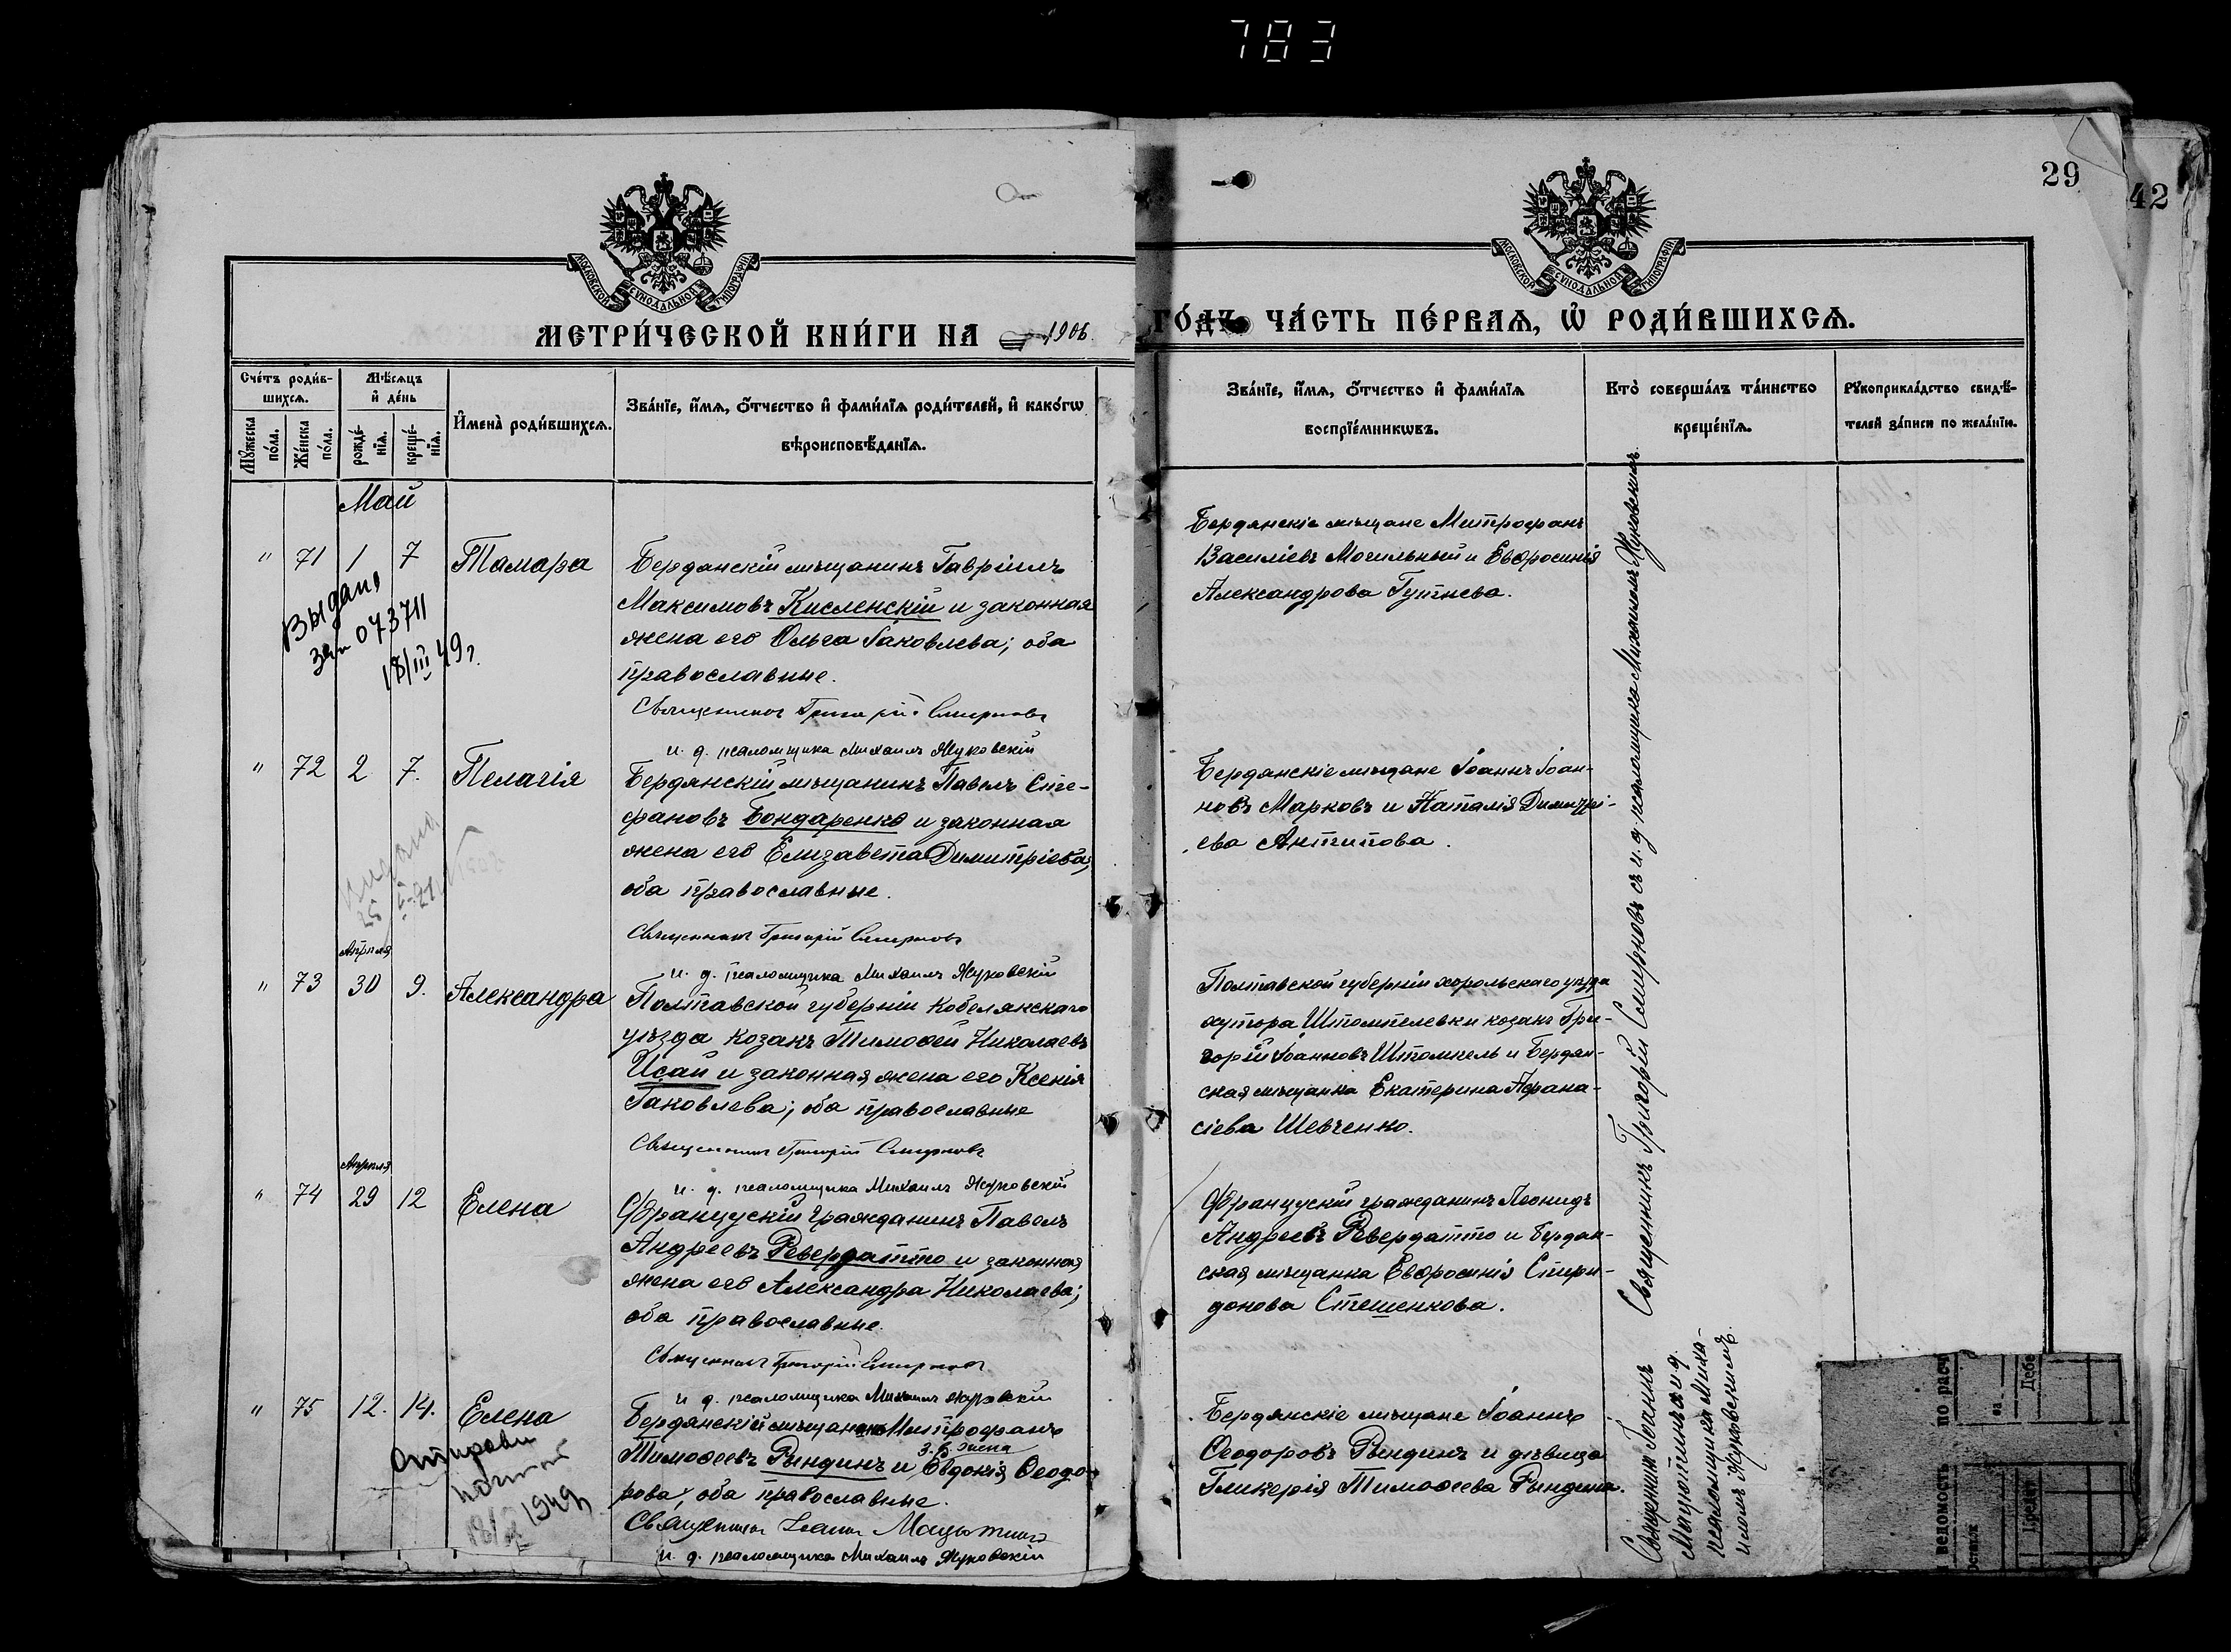 783
29
42
МОСКОВСКОЙ СѴНОДАЛЬНОЙ ТИПОГРАФІИ
МОСКОВСКОЙ СѴНОДАЛЬНОЙ ТИПОГРАФІИ
МЕТРИ́ЧЕСКОЙ КНИ́ГИ НА 1906.
ГО́ДЪ ЧА́СТЬ ПЕ́РВАѦ, Ѡ РОДИ́ВШИХСѦ.
Сче́тъ роди́в-
шихсѧ.
Мꙋ́жеска по́ла.
Же́нска по́ла.
Мѣ́сѧцъ
и҆ де́нь
рожде́-
нїѧ.
креще́-
нїѧ.
И҆мена̀ роди́вшихсѧ.
Зва́нїе, и҆́мѧ, ѻ҆́тчество и҆ фами́лїѧ роди́телей, и҆ како́гѡ
вѣроисповѣ́данїѧ.
Зва́нїе, и҆́мѧ, ѻ҆́тчество и҆ фами́лїѧ
воспрїе́мникѡвъ.
Кто̀ соверша́лъ та́инство
креще́нїѧ.
Рꙋкоприкла́дство свидѣ́-
телей за́писи по жела́нїю.
Май
" 71 1 7 Тамара
Бердянскій мѣщанинъ Гавріилъ
Максимовъ Кисленскій и законная
жена его Ольга Іаковлева; оба
православные.
Священникъ Григорій Смирновъ
и. д. псаломщика Михаилъ Жуковскій
Бердянскіе мѣщане Митрофанъ
Василіевъ Могильный и Евфросинія
Александрова Гутнева.
Выдано
073711
18/III 49г.
" 72 2 7. Пелагія
Бердянскій мѣщанинъ Павелъ Сте-
фановъ Бондаренко и законная
жена его Елизавета Димитріева;
оба православные.
Священникъ Григорій Смирновъ
и. д. псаломщика Михаилъ Жуковскій
Бердянскіе мѣщане Іоаннъ Іоан-
новъ Марковъ и Наталія Димитрі-
ева Антипова.
Апрѣля
" 73 30 9. Александра
Полтавской губерніи Кобелякскаго
уѣзда козакъ Тимоѳей Николаевъ
Исай и законная жена его Ксенія
Іаковлева; оба православные
Священникъ Григорій Смирновъ
и. д. псаломщика Михаилъ Жуковскій
Полтавской губерніи хорольскаго уѣзда
хутора Штомпелевки козакъ Гри-
горій Іоанновъ Штомпель и Бердян-
ская мѣщанка Екатерина Афана-
сіева Шевченко.
Апрѣля
" 74 29 12 Елена
Французскій гражданинъ Павелъ
Андреевъ Ревердатто и законная
жена его Александра Николаева;
оба православные.
Священникъ Григорій Смирновъ
и. д. псаломщика Михаилъ Жуковскій
Французскій гражданинъ Леонидъ
Андреевъ Ревердатто и Бердян-
ская мѣщанка Евфросинія Спири-
донова Стешенкова.
" 75 12. 14. Елена
Бердянскій мѣщанинъ Митрофанъ
Тимоѳеевъ Рындинъ и з. б. жена Евдокія Ѳеодо-
рова, оба православные.
Священникъ Іоаннъ Мацютинъ
и. д. псаломщика Михаилъ Жуковскій
Бердянскіе мѣщане Іоаннъ
Ѳеодоровъ Рындинъ и дѣвица
Гликерія Тимоѳеева Рындина.
1949
Священникъ Григорій Смирновъ съ и. д. псаломщика Михаиломъ Жуковскимъ
Священникъ Іоаннъ
Мацютинъ съ и. д.
псаломщика Миха-
иломъ Жуковскимъ.
ведомость
по расч
на
Дебе
Кредит